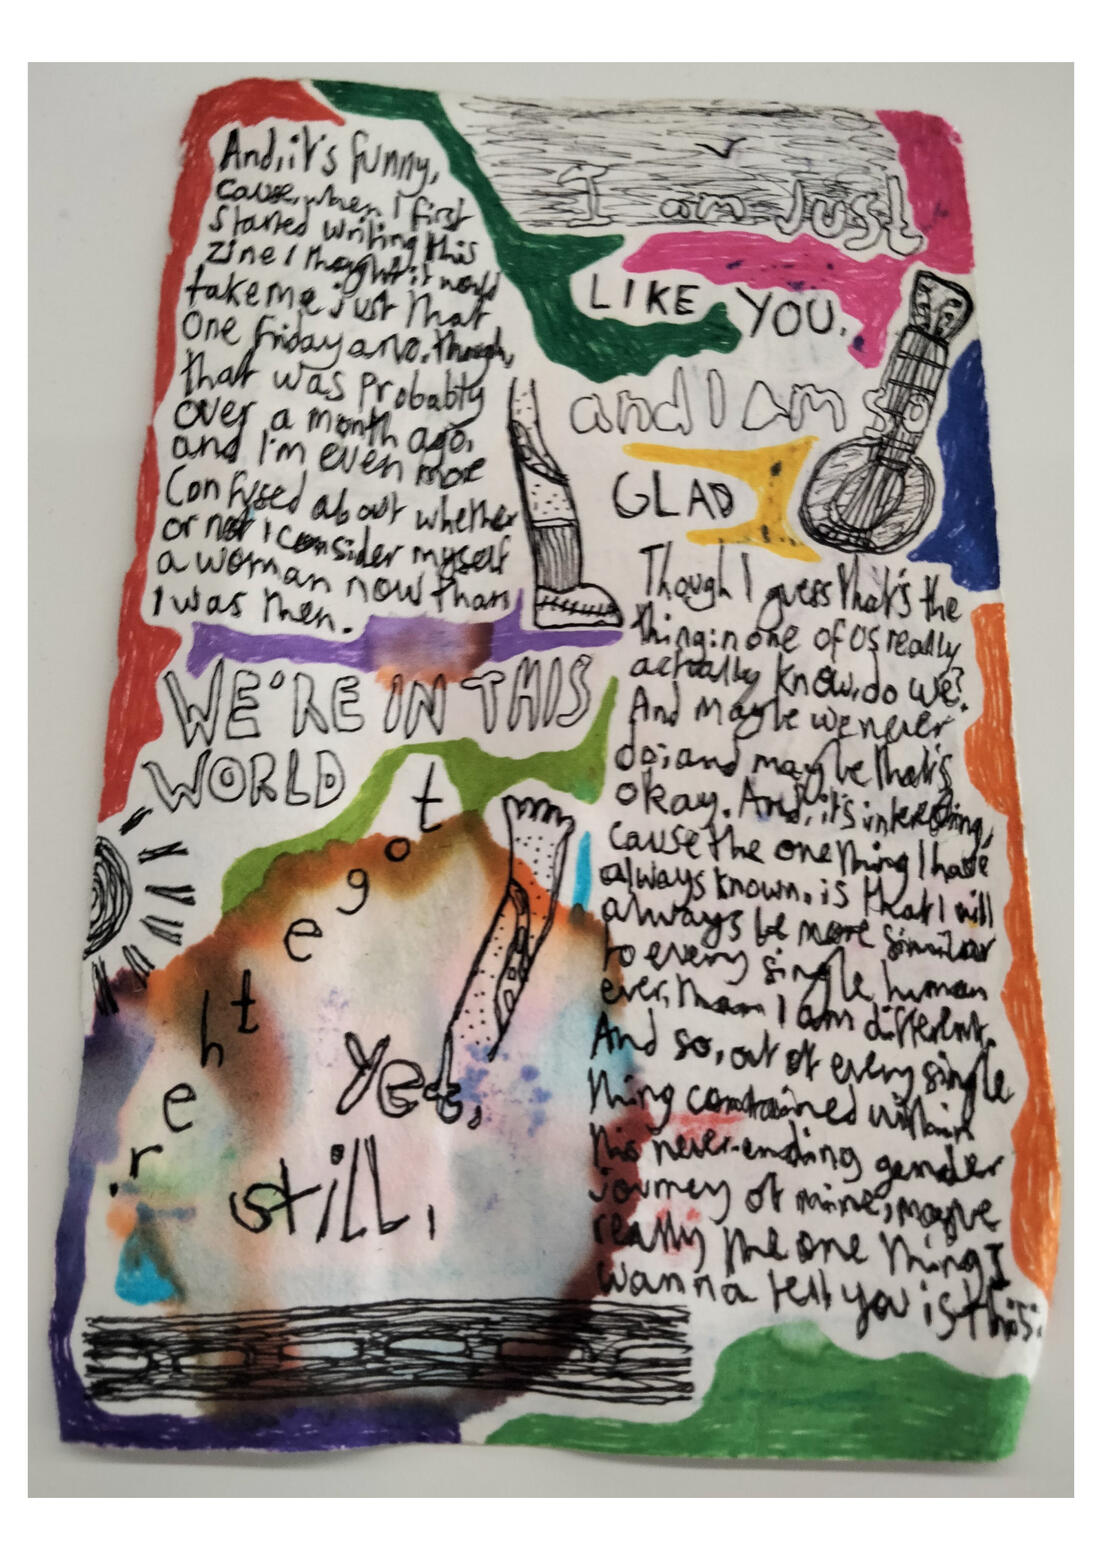 And, it's funny,
cause, when I first
started writing this
zine I thought it would
take me just that
one friday arvo. though,
that was probably
over a month ago,
and I'm even more
confused about whether
or not I consider myself
a woman now than
I was then.
Though I guess that's the
thing: none of us really
actually know, do we?
And maybe we never
do; and maybe that's
okay. And, it's interesting,
cause the one thing I have
always known, is that I will
always be more similar
to every single human
ever, than I am different.
And so, out of every single
thing contained within
this never-ending gender
journey of mine, maybe
really the one thing I
wanna tell you is this:
I am just
LIKE YOU.
and I am so
GLAD
WE'RE IN THIS
WORLD
together.
Yet,
still,